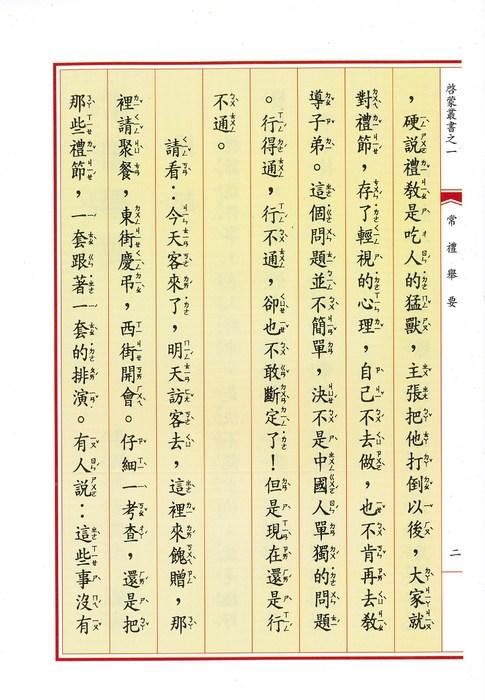 啓蒙叢書之一
常禮舉要
二
，硬說禮教是吃人的猛獸，主張把他打倒以後，大家就
對禮節，存了輕視的心理，自己不去做，也不肯再去教
導子弟。這個問題並不簡單，決不是中國人單獨的問題
。行得通，行不通，卻也不敢斷定了！但是現在還是行
不通。
請看：今天客來了，明天訪客去，這裡來餽贈，那
裡請聚餐，東街慶弔，西街開會。仔細一考查，還是把
那些禮節，一套跟著一套的排演。有人說：這些事沒有